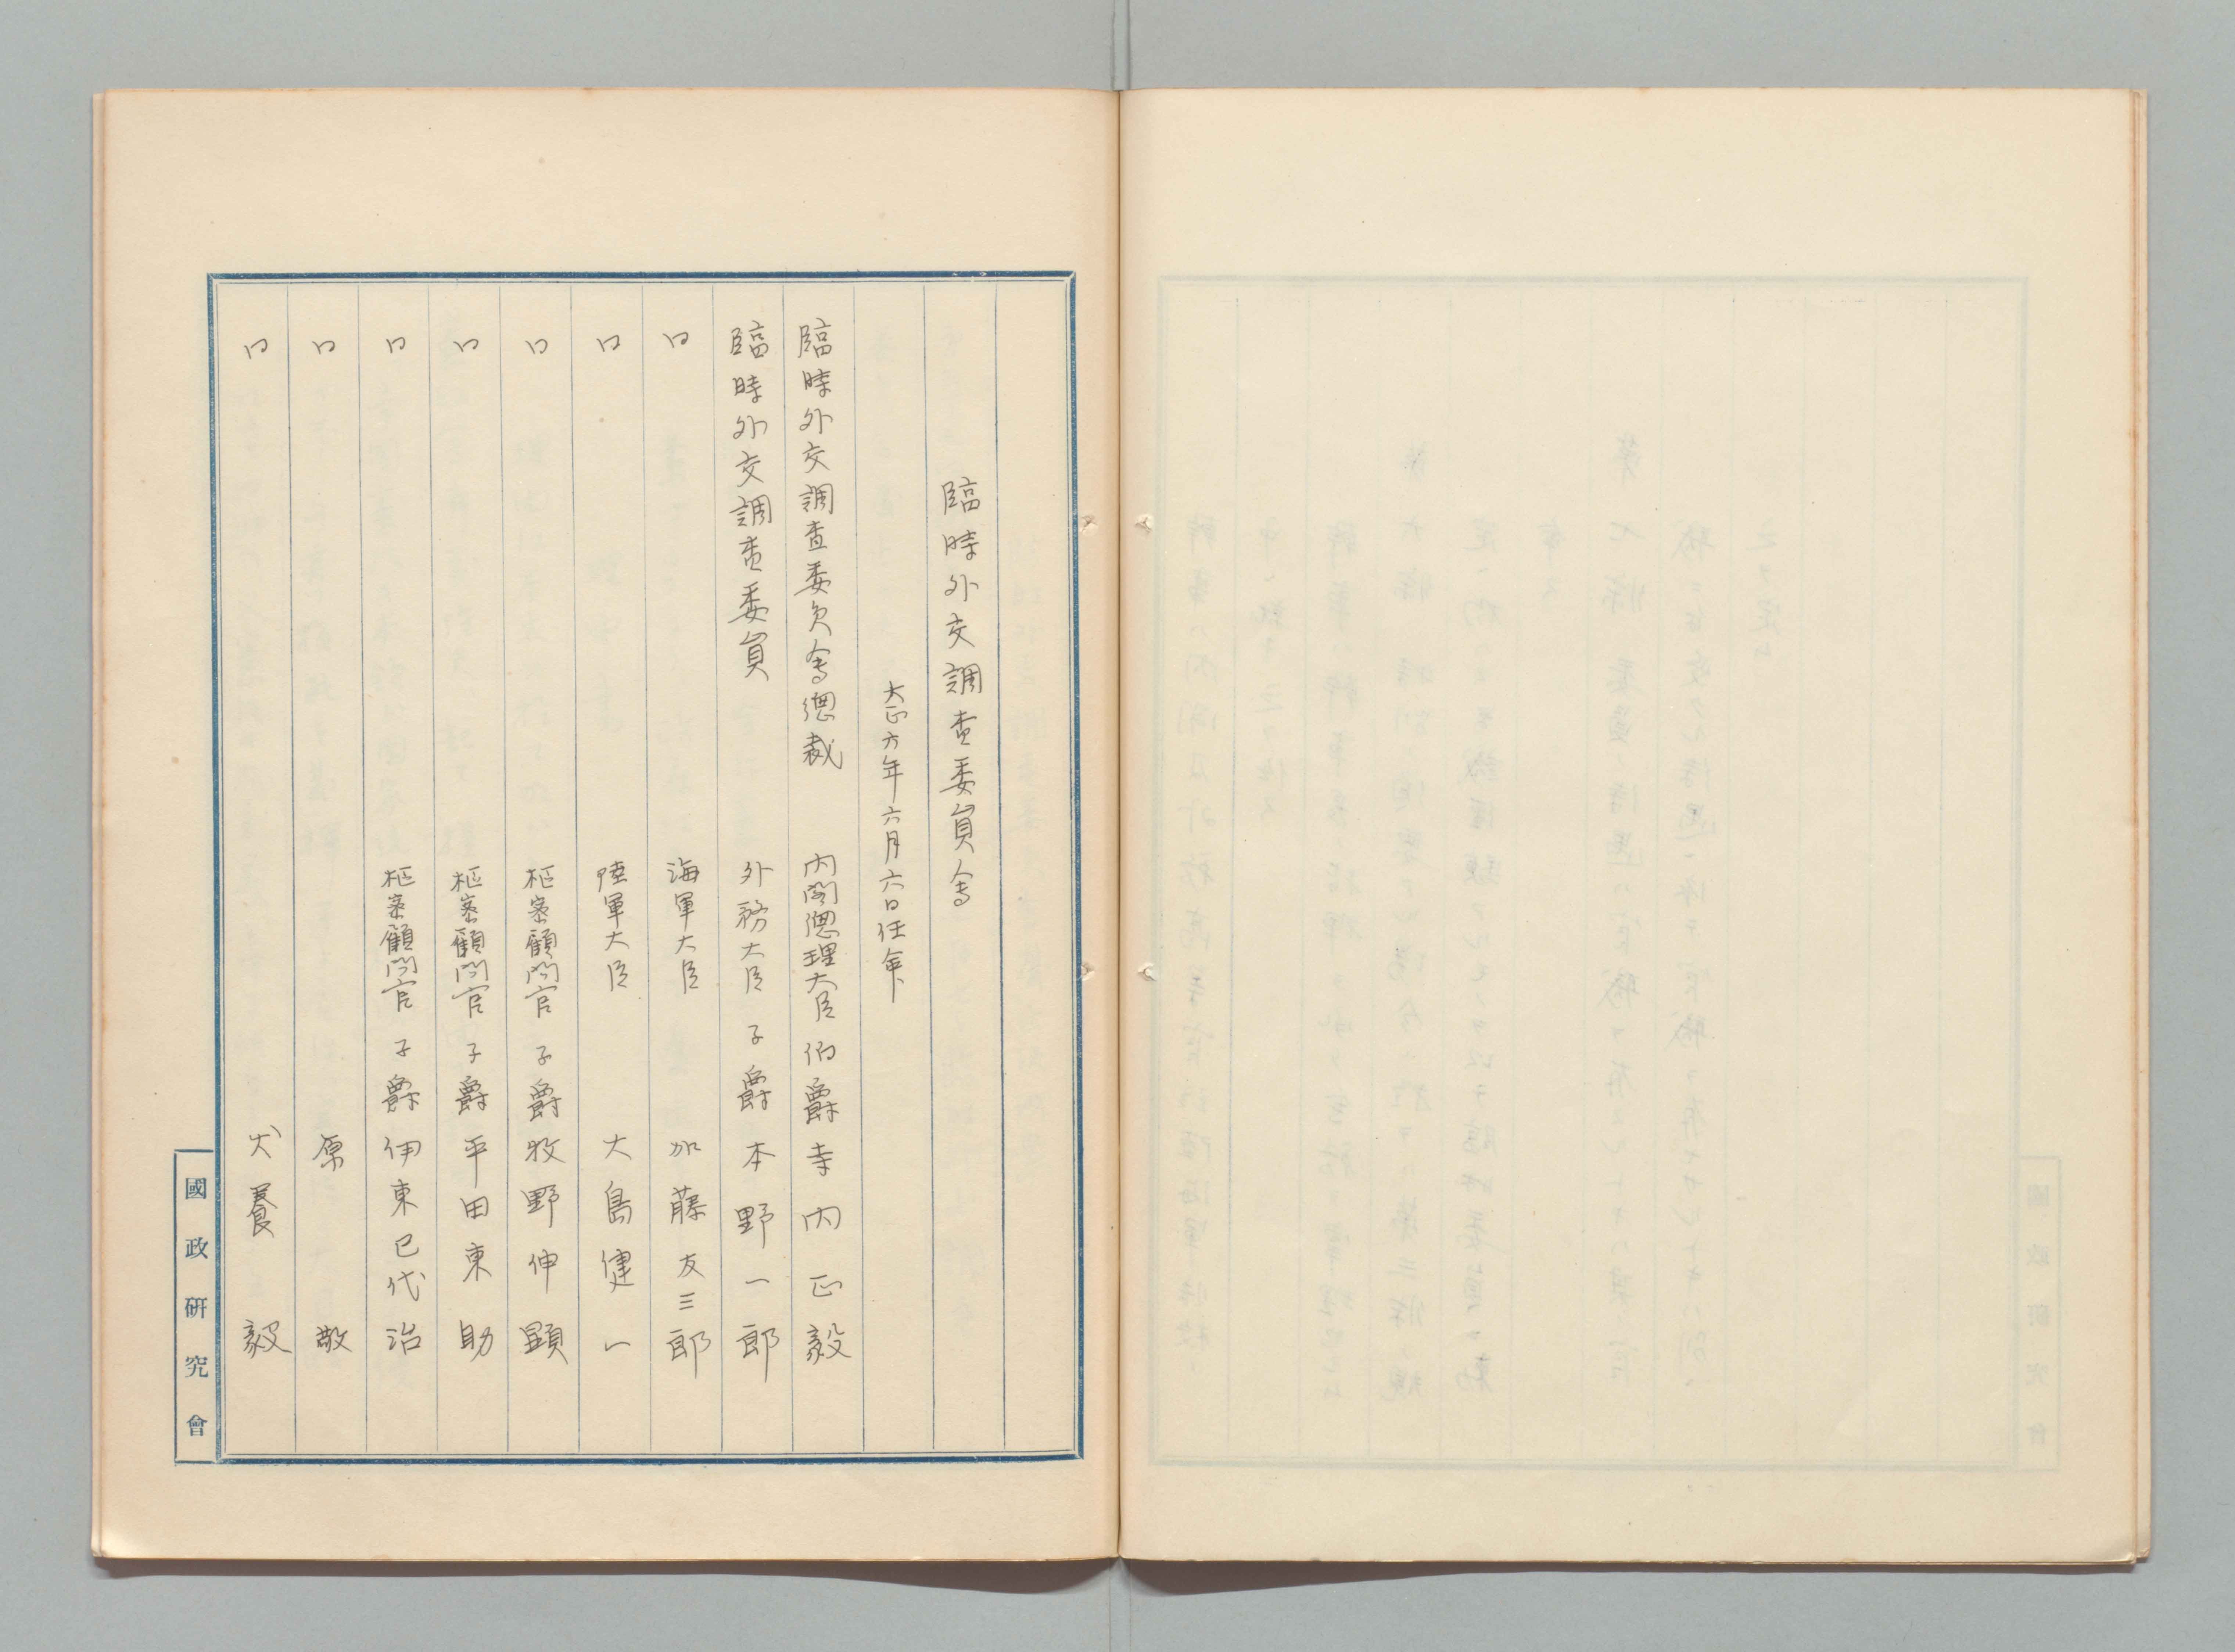 臨時外交調査委員會
大正六年六月六日任命
臨時外交調査委員会總裁 内閣總理大臣 伯爵 寺内正毅
臨時外交調査委員 外務大臣 子爵 本野一郎
〃 海軍大臣 加藤友三郎
〃 陸軍大臣 大島健一
〃 枢密顧問官 子爵 牧野伸顕
〃 枢密顧問官 子爵 平田東助
〃 枢密顧問官 子爵 伊東巳代治
〃 原敬
〃 犬養毅
國政研究會